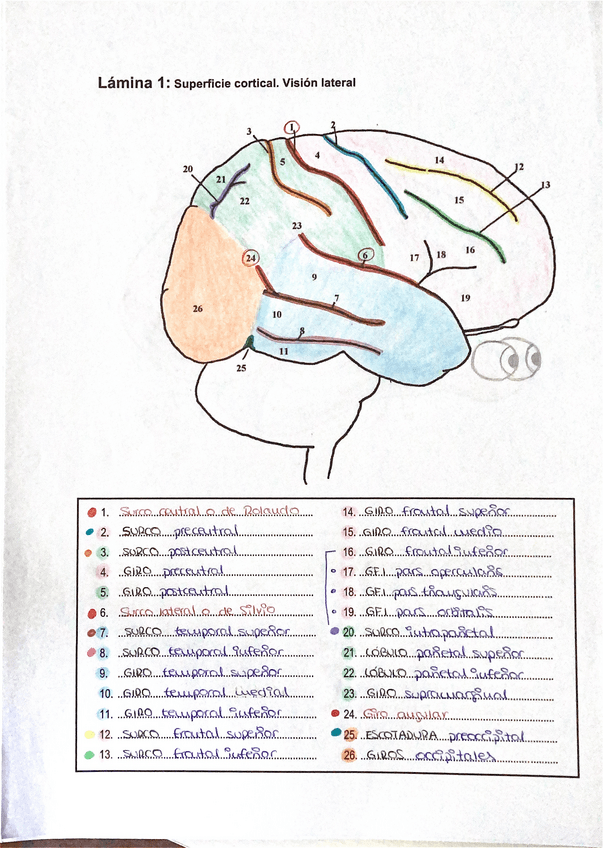 Lámina 1: Superficie cortical. Visión lateral
1
2
3
5
4
14
12
20
21
13
22
15
23
16
24
6
17
18
9
19
26
10
7
8
11
25
1. Surco central o de Rolando
2. SURCO precentral
3. SURCO postcentral
4. GIRO precentral
5. GIRO postcentral
6. Surco lateral o de Silvio
7. SURCO temporal superior
8. SURCO temporal inferior
9. GIRO temporal superior
10. GIRO temporal medial
11. GIRO temporal inferior
12. SURCO frontal superior
13. SURCO frontal inferior
14. GIRO frontal superior
15. GIRO frontal medio
16. GIRO frontal inferior
17. GFI pars opercularis
18. GFI pars triangularis
19. GFI pars orbitalis
20. SURCO intraparietal
21. LÓBULO parietal superior
22. LÓBULO parietal inferior
23. GIRO supramarginal
24. Giro angular
25. ESCOTADURA preoccipital
26. GIROS occipitales